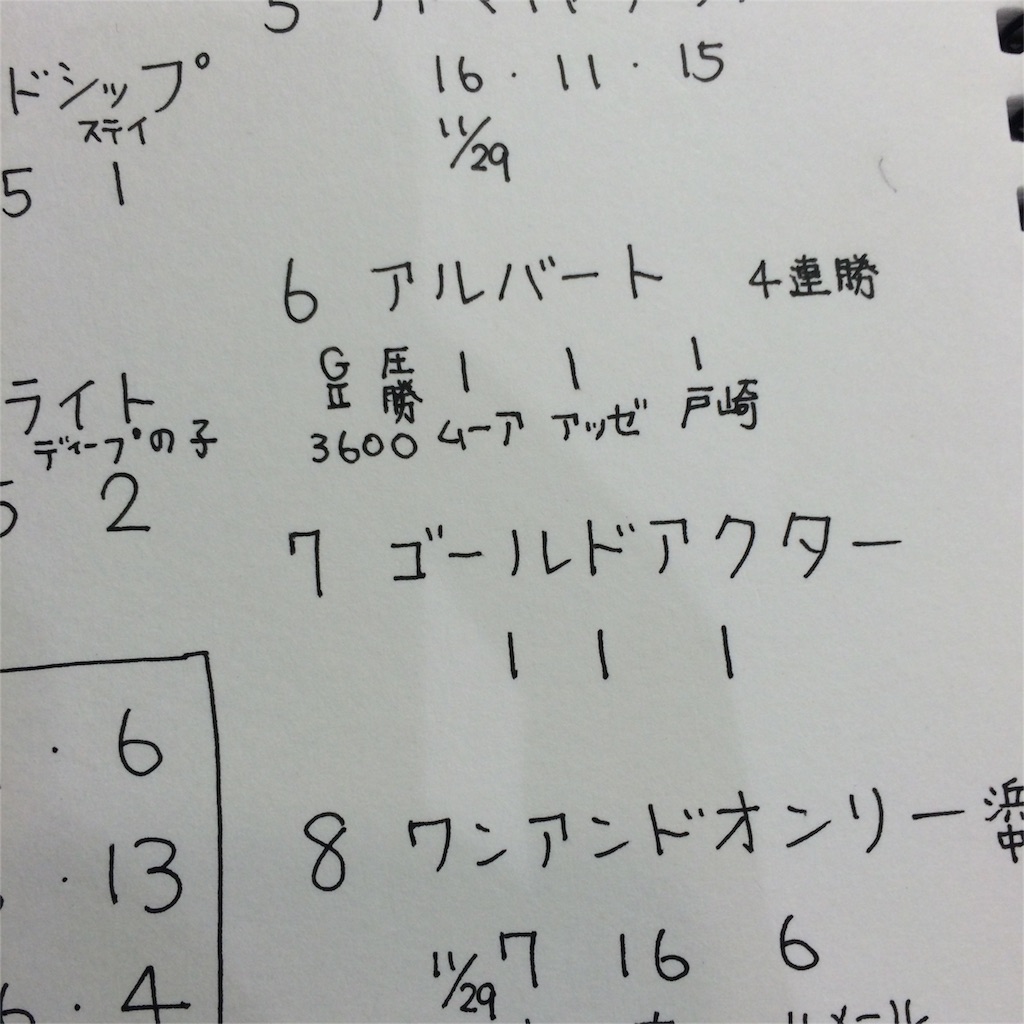 ドシップ
ステイ
5 1
ライト
ディープの子
5 2
・ 6
・ 13
6・4
5
16・11・15
11/29
6 アルバート 4連勝
GⅡ 圧勝 1 1 1
3600 ムーア アッゼ 戸崎
7 ゴールドアクター
1 1 1
8 ワンアンドオンリー 浜中
11/29 7 16 6
ルメール